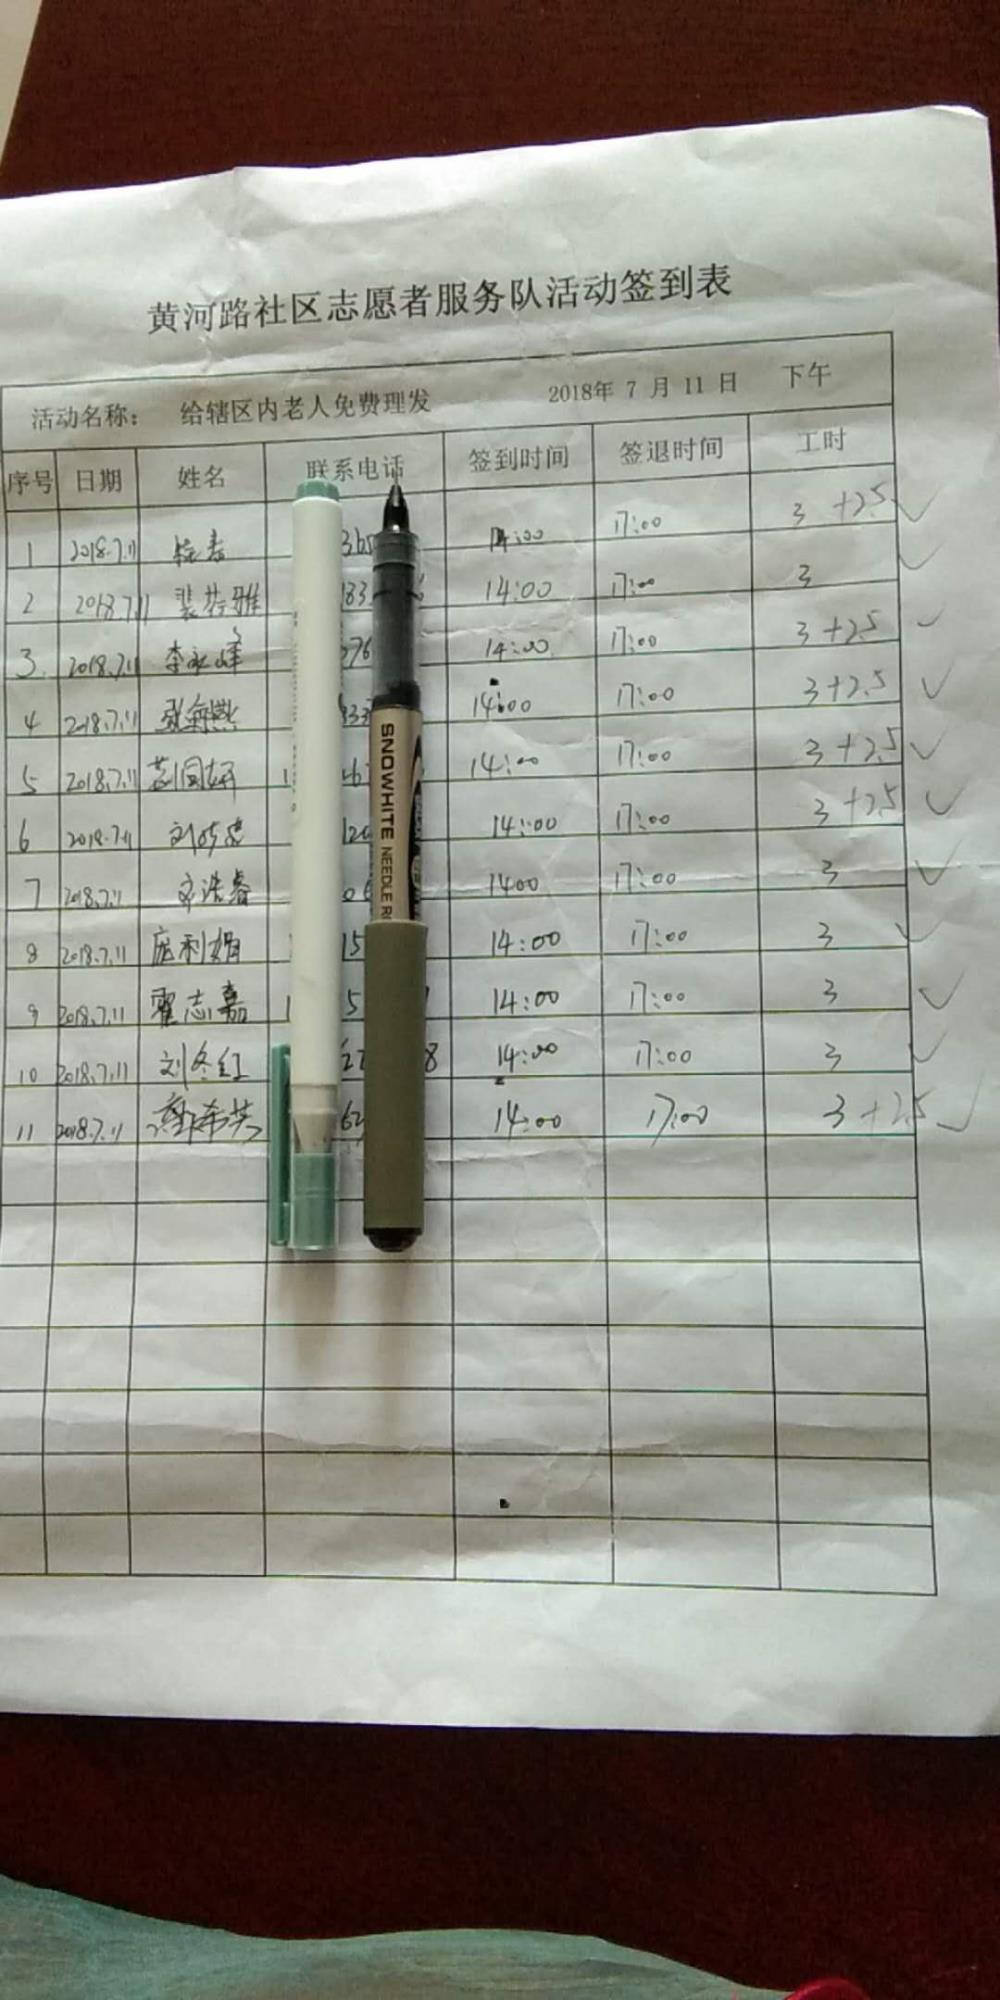 黄河路社区志愿者服务队活动签到表
活动名称： 给辖区内老人免费理发 2018年 7 月 11 日 下午
序号 日期 姓名 联系电话 签到时间 签退时间 工时
1 2018.7.11 14:00 17:00 3 +2.5
2 2018.7.11 裴芬雅 14:00 17:00 3
3. 2018.7.11 李永峰 14:00 17:00 3+2.5
4 2018.7.11 14:00 17:00 3+2.5
5 2018.7.11 14:00 17:00 3+2.5
6 2018.7.11 14:00 17:00 3+2.5
7 2018.7.11 1400 17:00 3
8 2018.7.11 庞利娟 14:00 17:00 3
9 2018.7.11 翟志嘉 14:00 17:00 3
10 2018.7.11 刘冬红 14:00 17:00 3
11 2018.7.11 14:00 17:00 3+2.5
SNOWHITE NEEDLE